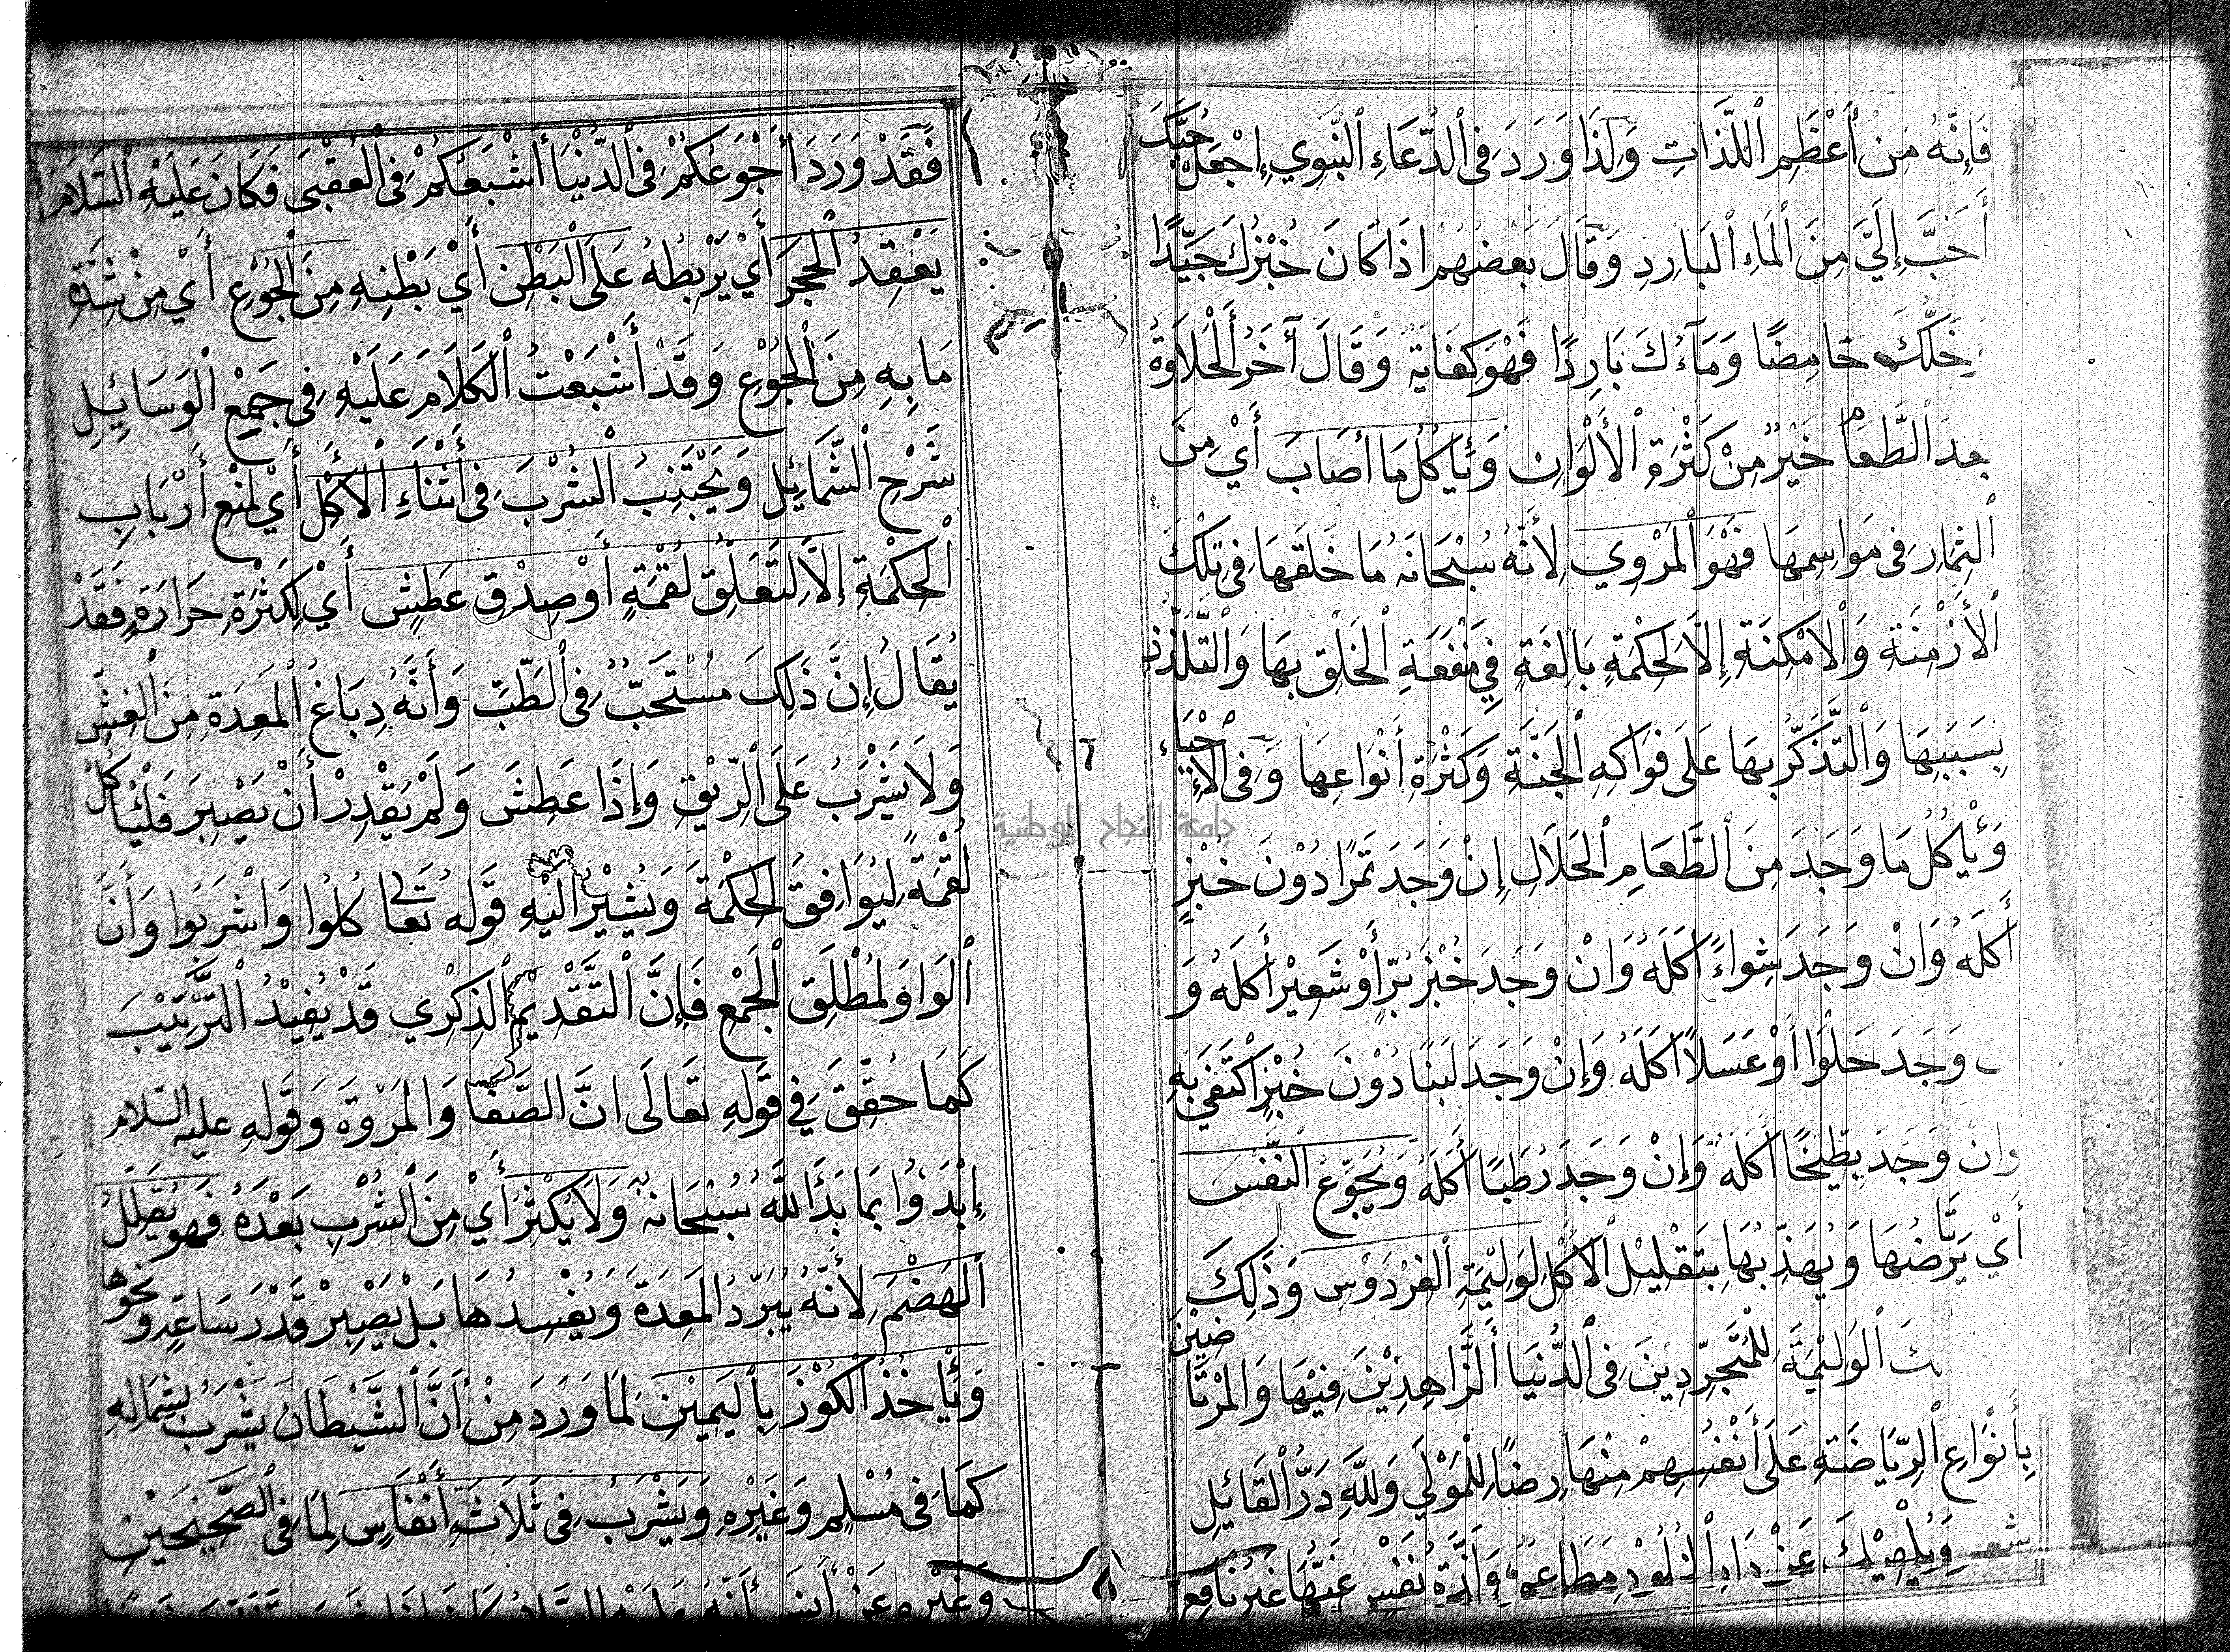 فَإِنَّهُ مِنْ أَعْظَمِ ٱللَّذَاتِ وَلِذَا وَرَدَ فِى ٱلدُّعَاءِ ٱلنَّبَوِيِ إِجْعَلْ حُبَّكَ
أَحَبَّ إِلَيَّ مِنَ ٱلْمَاءِ ٱلْبَارِدِ وَقَالَ بَعْضُهُمْ اذَا كَانَ خُبْزُكَ جَيِّدًا
خَلُّكَ حَامِضًا وَمَآءُكَ بَارِدًا فَهْوَ كِفَايَة وَقَالَ آخَرُ ٱلْحَلَاوَةُ
بعدَ ٱلطَّعَامِ خَيْرٌ مِنْ كَثْرَةِ ٱلْأَلْوَانِ وَيَأْكُلُ مَا أَصَابَ أَيْ مِنَ
ٱلثِمَارِ فِى مَوَاسِمِهَا فَهْوَ ٱلْمَرْوِي لِأَنَّهُ سُبْحَانَهُ مَا خَلَقَهَا فِى تِلْكَ
ٱلْأَزْمِنَةِ وَٱلْامْكِنَةِ إِلَّا لِحِكْمَةٍ بَالِغَةٍ فِي مَنْفَعَةِ ٱلْخَلْقِ بِهَا وَٱلتَّلَذُّذِ
بِسَبَبِهَا وَٱلتَّذَكُّرِ بِهَا عَلَى فَوَاكِهِ ٱلْجَنَّةِ وَكَثْرَةِ أَنْوَاعِهَا وَفِى ٱلْإِحْيَاءِ
وَيَأْكُلُ مَا وَجَدَ مِنَ ٱلطَّعَامِ ٱلْحَلَالِ إِنْ وَجَدَ تَمْرًا دُوْنَ خُبْزٍ
أَكَلَهُ وَانْ وَجَدَ شِوَاءً أَكَلَهُ وَانْ وَجَدَ خُبْزَ بُرٍّ أَوْ شَعِيْرٍ أَكَلَهُ وَ
وَجَدَ حَلْوًا أَوْ عَسَلًا أَكَلَهُ وَإِنْ وَجَدَ لَبَنًا دُوْنَ خُبْزٍ اكْتَفَى بِهِ
وانْ وَجَدَ بِطِّيْخًا أَكَلَهُ وَإِنْ وَجَدَ رُطَبًا أَكَلَهُ وَيُجَوِّعُ ٱلنَّفْسَ
أَيْ يَرْتَاضُهَا وَيُهَذِّبُهَا بِتَقْلِيْلِ ٱلْأَكْلِ لِوَلِيْمَةِ ٱلْفِرْدَوْسِ وَذَلِكَ
كَ ٱلْوَلِيْمَةَ لِلْمُتَجَرِّدِيْنَ فِى ٱلدُّنْيَا أَلزَّاهِدِيْنَ فِيْهَا وَالْمُرْتَاضِيْنَ
بِأَنْوَاعِ ٱلرِّيَاضَةِ عَلَى أَنْفُسِهِمْ مِنْهَا رِضًا لِلْمَوْلَى وَلِلَّهِ دَرُّ ٱلْقَائِلِ
شعر وَيُلْهِيْكَ عَنْ دَارِ ٱلْخُلُوْدِ مَطَاعِمٌ وَلَذَّةُ نَفْسٍ غِبُّهَا غَيْرُ نَافِعِ
فَقَدْ وَرَدَ أَجْوَعُكُمْ فِى ٱلدُّنْيَا أَشْبَعُكُمْ فِى ٱلْعُقْبَى فَكَانَ عَلَيْهِ ٱلسَّلَامُ
يَعْقِدُ ٱلْحَجَرَ أَيْ يَرْبِطُهُ عَلَى ٱلْبَطْنِ أَيْ بَطْنِهِ مِنَ ٱلْجُوْعِ أَيْ مِنْ شِدَّةِ
مَا بِهِ مِنَ ٱلْجُوْعِ وَقَدْ أَشْبَعْتُ ٱلْكَلَامَ عَلَيْهِ فِى جَمْعِ ٱلْوَسَائِلِ
شَرْحِ ٱلشَّمَائِلِ وَيَجْتَنِبُ ٱلشُّرْبَ فِى أَثْنَاءِ ٱلْأَكْلِ أَيْ لِمَنْعِ أَرْبَابِ
ٱلْحِكْمَةِ إِلَّا لِتَعَلُّقِ لُقْمَةٍ أَوْ صِدْقِ عَطِشٍ أَيْ لِكَثْرَةِ حَرَارَةٍ فَقَدْ
يُقَالُ إِنَّ ذَلِكَ مُسْتَحَبٌّ فِى ٱلطِّبِّ وَأَنَّهُ دِبَاغُ ٱلْمَعِدَةِ مِنَ ٱلْغِشِّ
وَلَا يَشْرَبُ عَلَى ٱلرِّيْقِ وَإِذَا عَطِشَ وَلَمْ يَقْدِرْ أَنْ يَصْبِرَ فَلْيَأْكُلْ
لُقْمَةً لِيُوَافِقَ ٱلْحِكْمَةَ وَيُشِيْرُ الَيْهِ قَوْلُه تَعَالَى كُلُوا وَاشْرَبُوا وَأَنَّ
ٱلْوَاوَ لِمُطْلَقِ ٱلْجَمْعِ فَإِنَّ ٱلتَّقْدِيْمَ ٱلذِكْرِي قَدْ يُفِيْدُ ٱلتَّرْتِيْبَ
كَمَا حُقِّقَ فِي قَوْلِهِ تَعَالَى انَّ الصَّفَا وَالْمَرْوَةَ وَقَوْلِهِ عليه السّلام
إِبْدَؤُا بِمَا بَدَأَ اللَّهُ سُبْحَانَهُ وَلَا يُكْثِرُ أَيْ مِنَ ٱلشُّرْبِ بَعْدَهُ فَهُوَ يُقَلِّلُ
ٱلْهَضْمَ لِأَنَّهُ يُبَرِّدُ ٱلْمَعِدَةَ وَيُفْسِدُهَا بَلْ يَصْبِرْ قَدْرَ سَاعَةٍ وَنَحْوِهَا
وَيَأْخُذُ ٱلْكُوْزَ بِٱلْيَمِيْنِ لِمَا وَرَدَ مِنْ أَنَّ ٱلشَّيْطَانَ يَشْرَبُ بِشِمَالِهِ
كَمَا فِى مُسْلِمٍ وَغَيْرِهِ وَيَشْرَبُ فِى ثَلَاثَةِ أَنْفَاسٍ لِمَا فِى ٱلصَّحِيْحَيْنِ
وَغَيْرِهِ عَنْ أَنَسٍ أَنَّهُ عَلَيْهِ السَّلَامُ كَانَ إِذَا
جامعة النجاح الوطنية